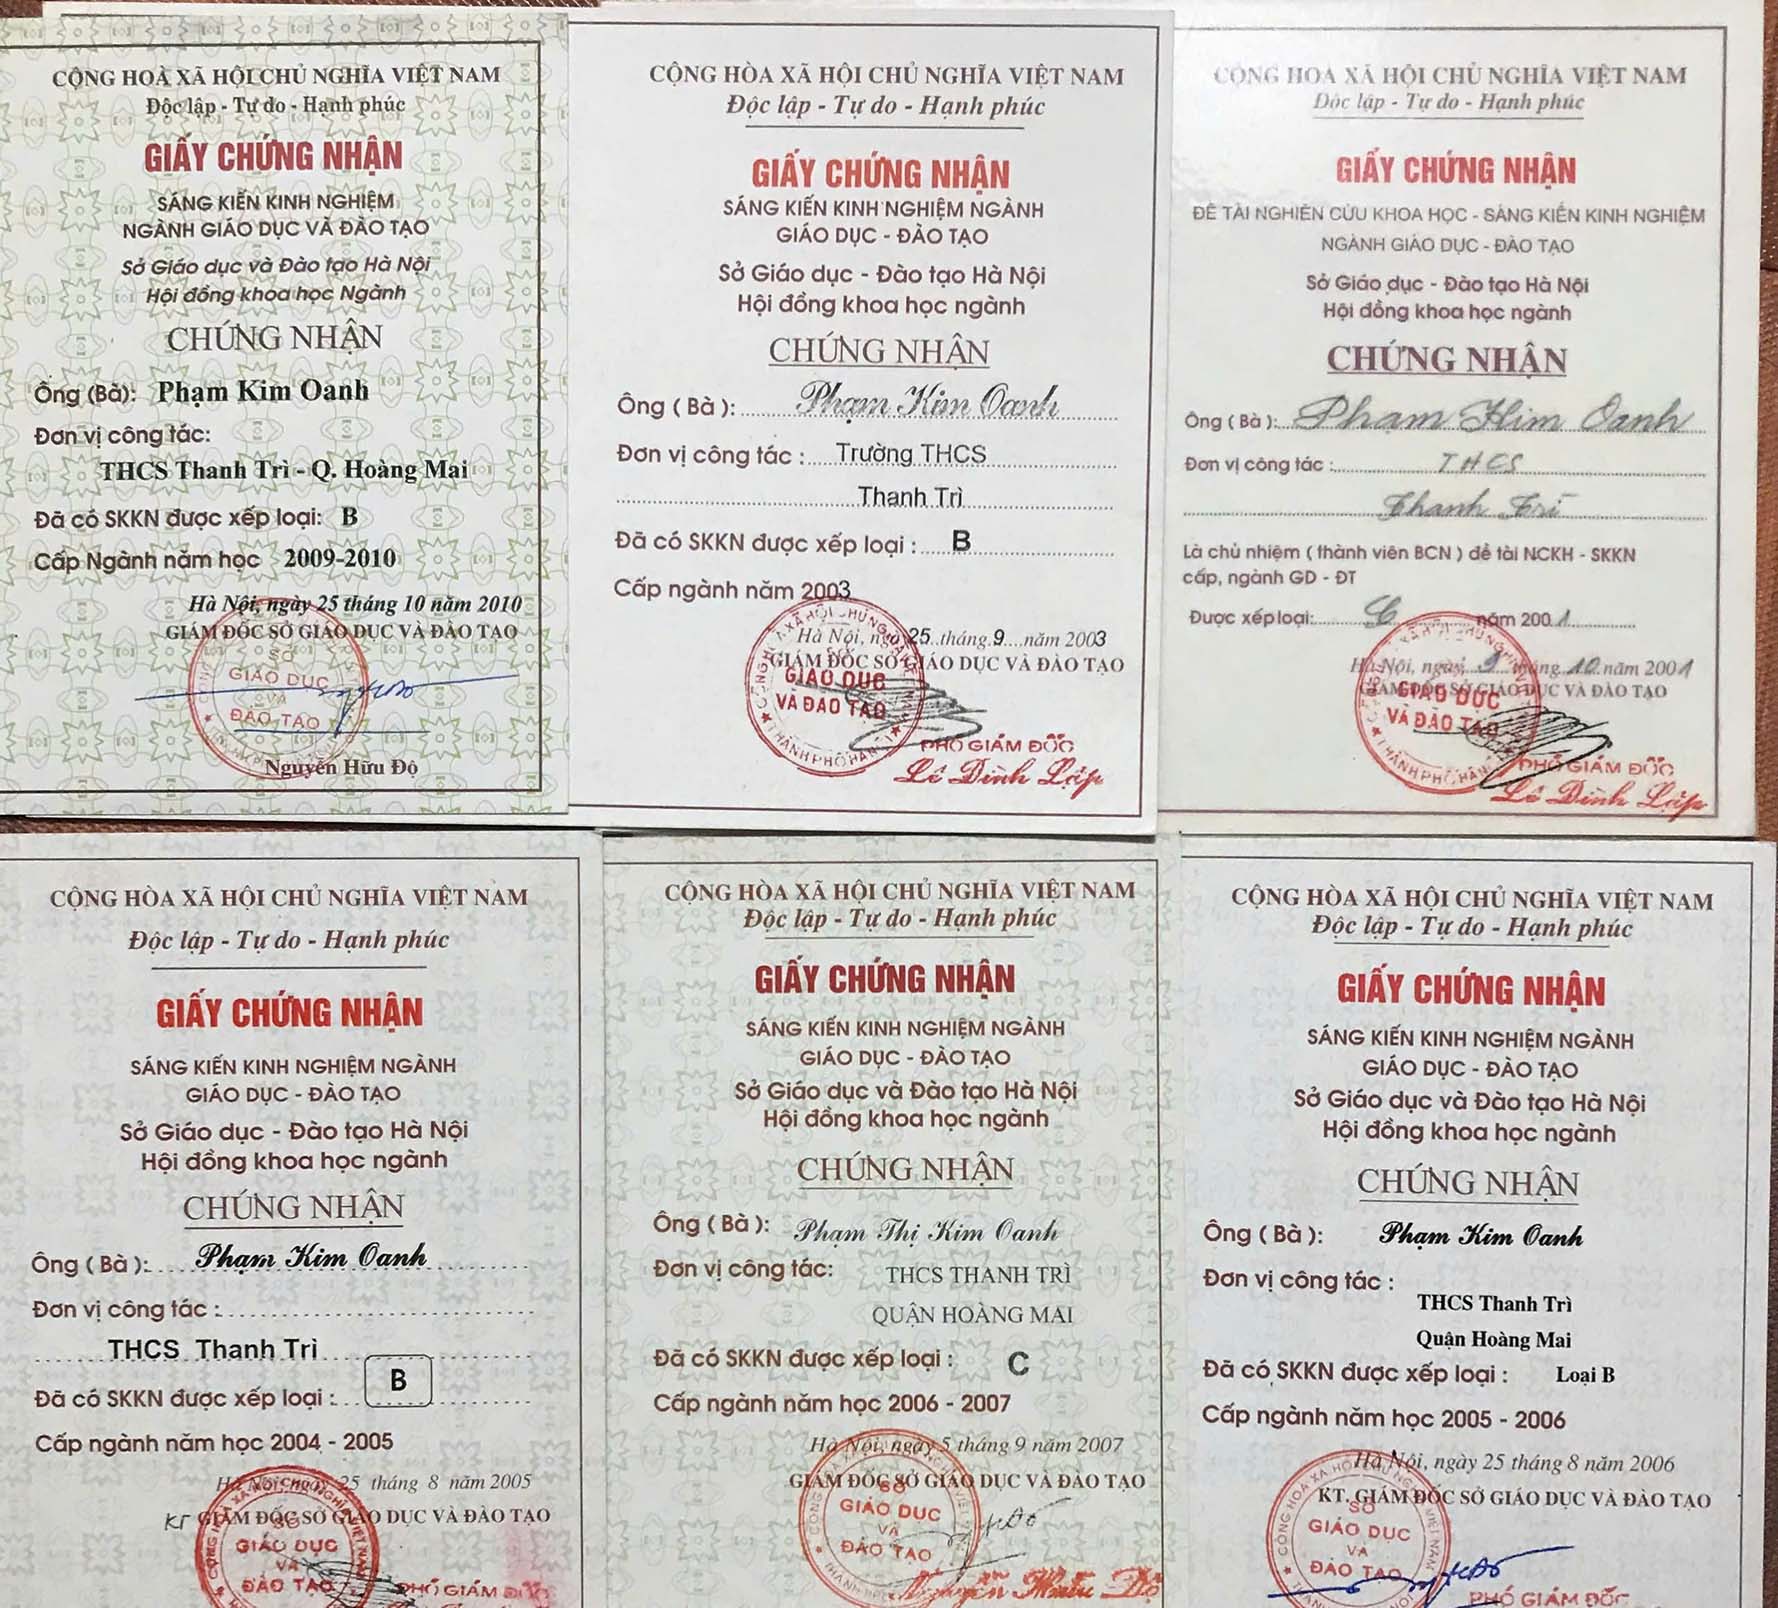 CỘNG HOÀ XÃ HỘI CHỦ NGHĨA VIỆT NAM
Độc lập - Tự do - Hạnh phúc
GIẤY CHỨNG NHẬN
SÁNG KIẾN KINH NGHIỆM
NGÀNH GIÁO DỤC VÀ ĐÀO TẠO
Sở Giáo dục và Đào tạo Hà Nội
Hội đồng khoa học Ngành
CHỨNG NHẬN
Ông (Bà): Phạm Kim Oanh
Đơn vị công tác:
THCS Thanh Trì - Q. Hoàng Mai
Đã có SKKN được xếp loại: B
Cấp Ngành năm học 2009-2010
Hà Nội, ngày 25 tháng 10 năm 2010
GIÁM ĐỐC SỞ GIÁO DỤC VÀ ĐÀO TẠO
SỞ
GIÁO DỤC
VÀ
ĐÀO TẠO
Nguyễn Hữu Độ
CỘNG HÒA XÃ HỘI CHỦ NGHĨA VIỆT NAM
Độc lập - Tự do - Hạnh phúc
GIẤY CHỨNG NHẬN
SÁNG KIẾN KINH NGHIỆM NGÀNH
GIÁO DỤC - ĐÀO TẠO
Sở Giáo dục - Đào tạo Hà Nội
Hội đồng khoa học ngành
CHỨNG NHẬN
Ông ( Bà ): Phạm Kim Oanh
Đơn vị công tác : Trường THCS
Thanh Trì
Đã có SKKN được xếp loại : B
Cấp ngành năm 2003
Hà Nội, ngày 25 tháng 9 năm 2003
GIÁM ĐỐC SỞ GIÁO DỤC VÀ ĐÀO TẠO
GIÁO DỤC
VÀ ĐÀO TẠO
PHÓ GIÁM ĐỐC
Lê Đình Lập
CỘNG HOÀ XÃ HỘI CHỦ NGHĨA VIỆT NAM
Độc lập - Tự do - Hạnh phúc
GIẤY CHỨNG NHẬN
ĐỀ TÀI NGHIÊN CỨU KHOA HỌC - SÁNG KIẾN KINH NGHIỆM
NGÀNH GIÁO DỤC - ĐÀO TẠO
Sở Giáo dục - Đào tạo Hà Nội
Hội đồng khoa học ngành
CHỨNG NHẬN
Ông ( Bà ): Phạm Kim Oanh
Đơn vị công tác : THCS
Thanh Trì
Là chủ nhiệm ( thành viên BCN ) đề tài NCKH - SKKN
cấp, ngành GD - ĐT
Được xếp loại: C năm 2001
Hà Nội, ngày 9 tháng 10 năm 2001
GIÁM ĐỐC SỞ GIÁO DỤC VÀ ĐÀO TẠO
GIÁO DỤC
VÀ ĐÀO TẠO
PHÓ GIÁM ĐỐC
Lê Đình Lập
CỘNG HÒA XÃ HỘI CHỦ NGHĨA VIỆT NAM
Độc lập - Tự do - Hạnh phúc
GIẤY CHỨNG NHẬN
SÁNG KIẾN KINH NGHIỆM NGÀNH
GIÁO DỤC - ĐÀO TẠO
Sở Giáo dục - Đào tạo Hà Nội
Hội đồng khoa học ngành
CHỨNG NHẬN
Ông ( Bà ): Phạm Kim Oanh
Đơn vị công tác :
THCS Thanh Trì
Đã có SKKN được xếp loại : B
Cấp ngành năm học 2004 - 2005
Hà Nội, ngày 25 tháng 8 năm 2005
KT GIÁM ĐỐC SỞ GIÁO DỤC VÀ ĐÀO TẠO
SỞ
GIÁO DỤC
VÀ
ĐÀO TẠO
PHÓ GIÁM ĐỐC
CỘNG HÒA XÃ HỘI CHỦ NGHĨA VIỆT NAM
Độc lập - Tự do - Hạnh phúc
GIẤY CHỨNG NHẬN
SÁNG KIẾN KINH NGHIỆM NGÀNH
GIÁO DỤC - ĐÀO TẠO
Sở Giáo dục và Đào tạo Hà Nội
Hội đồng khoa học ngành
CHỨNG NHẬN
Ông ( Bà ): Phạm Thị Kim Oanh
Đơn vị công tác: THCS THANH TRÌ
QUẬN HOÀNG MAI
Đã có SKKN được xếp loại : C
Cấp ngành năm học 2006 - 2007
Hà Nội, ngày 5 tháng 9 năm 2007
GIÁM ĐỐC SỞ GIÁO DỤC VÀ ĐÀO TẠO
SỞ
GIÁO DỤC
VÀ
ĐÀO TẠO
Nguyễn Hữu Độ
CỘNG HÒA XÃ HỘI CHỦ NGHĨA VIỆT NAM
Độc lập - Tự do - Hạnh phúc
GIẤY CHỨNG NHẬN
SÁNG KIẾN KINH NGHIỆM NGÀNH
GIÁO DỤC - ĐÀO TẠO
Sở Giáo dục và Đào tạo Hà Nội
Hội đồng khoa học ngành
CHỨNG NHẬN
Ông ( Bà ): Phạm Kim Oanh
Đơn vị công tác :
THCS Thanh Trì
Quận Hoàng Mai
Đã có SKKN được xếp loại : Loại B
Cấp ngành năm học 2005 - 2006
Hà Nội, ngày 25 tháng 8 năm 2006
KT. GIÁM ĐỐC SỞ GIÁO DỤC VÀ ĐÀO TẠO
SỞ
GIÁO DỤC
VÀ
ĐÀO TẠO
PHÓ GIÁM ĐỐC